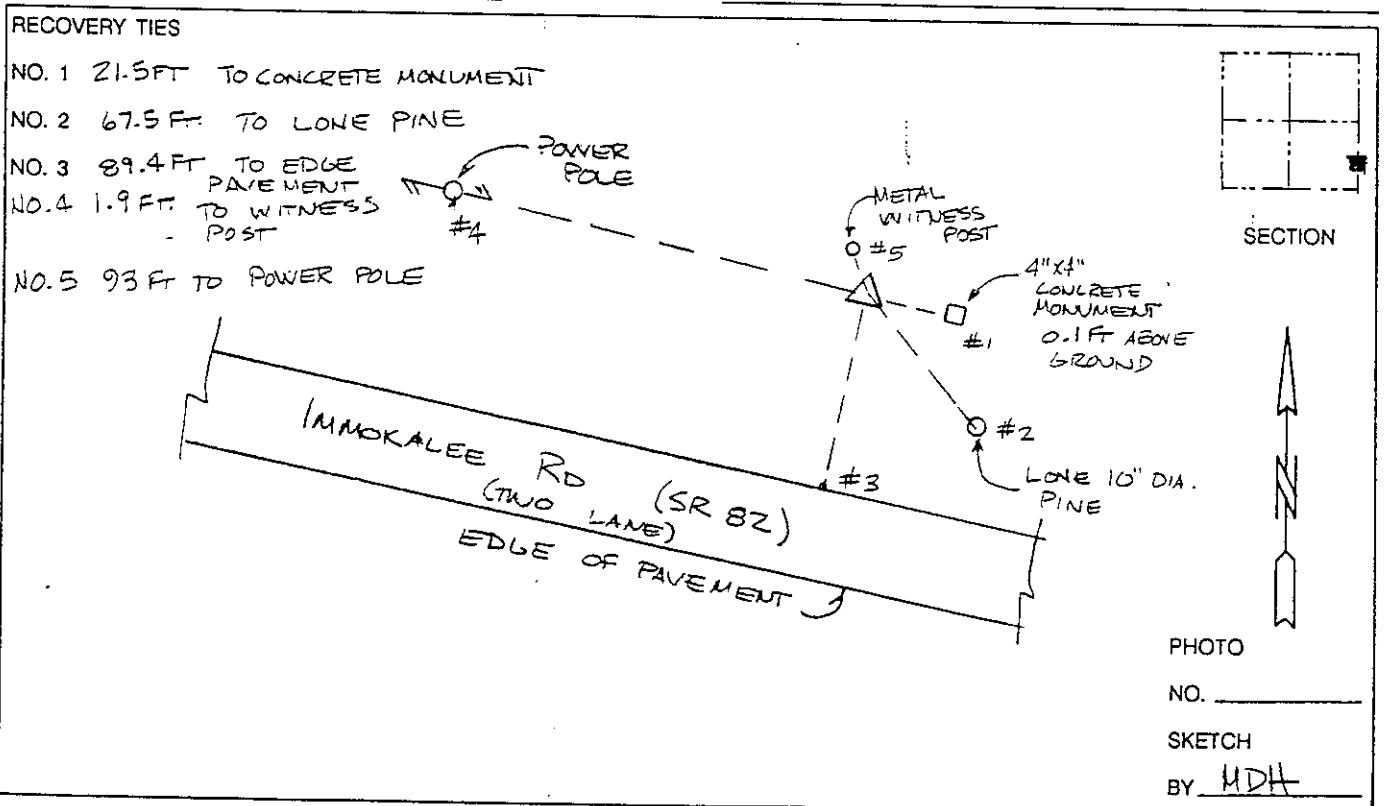 RECOVERY TIES
NO. 1 21.5FT TO CONCRETE MONUMENT
NO. 2 67.5 FT. TO LONE PINE
NO. 3 89.4 FT TO EDGE
PAVEMENT
NO. 4 1.9 FT. TO WITNESS
POST
NO. 5 93 FT TO POWER POLE
POWER
POLE
#4
METAL
WITNESS
POST
#5
4"X4"
CONCRETE
MONUMENT
0.1 FT ABOVE
GROUND
#1
#2
LONE 10" DIA.
PINE
#3
IMMOKALEE RD (SR 82)
(TWO LANE)
EDGE OF PAVEMENT
SECTION
N
PHOTO
NO.
SKETCH
BY MDH